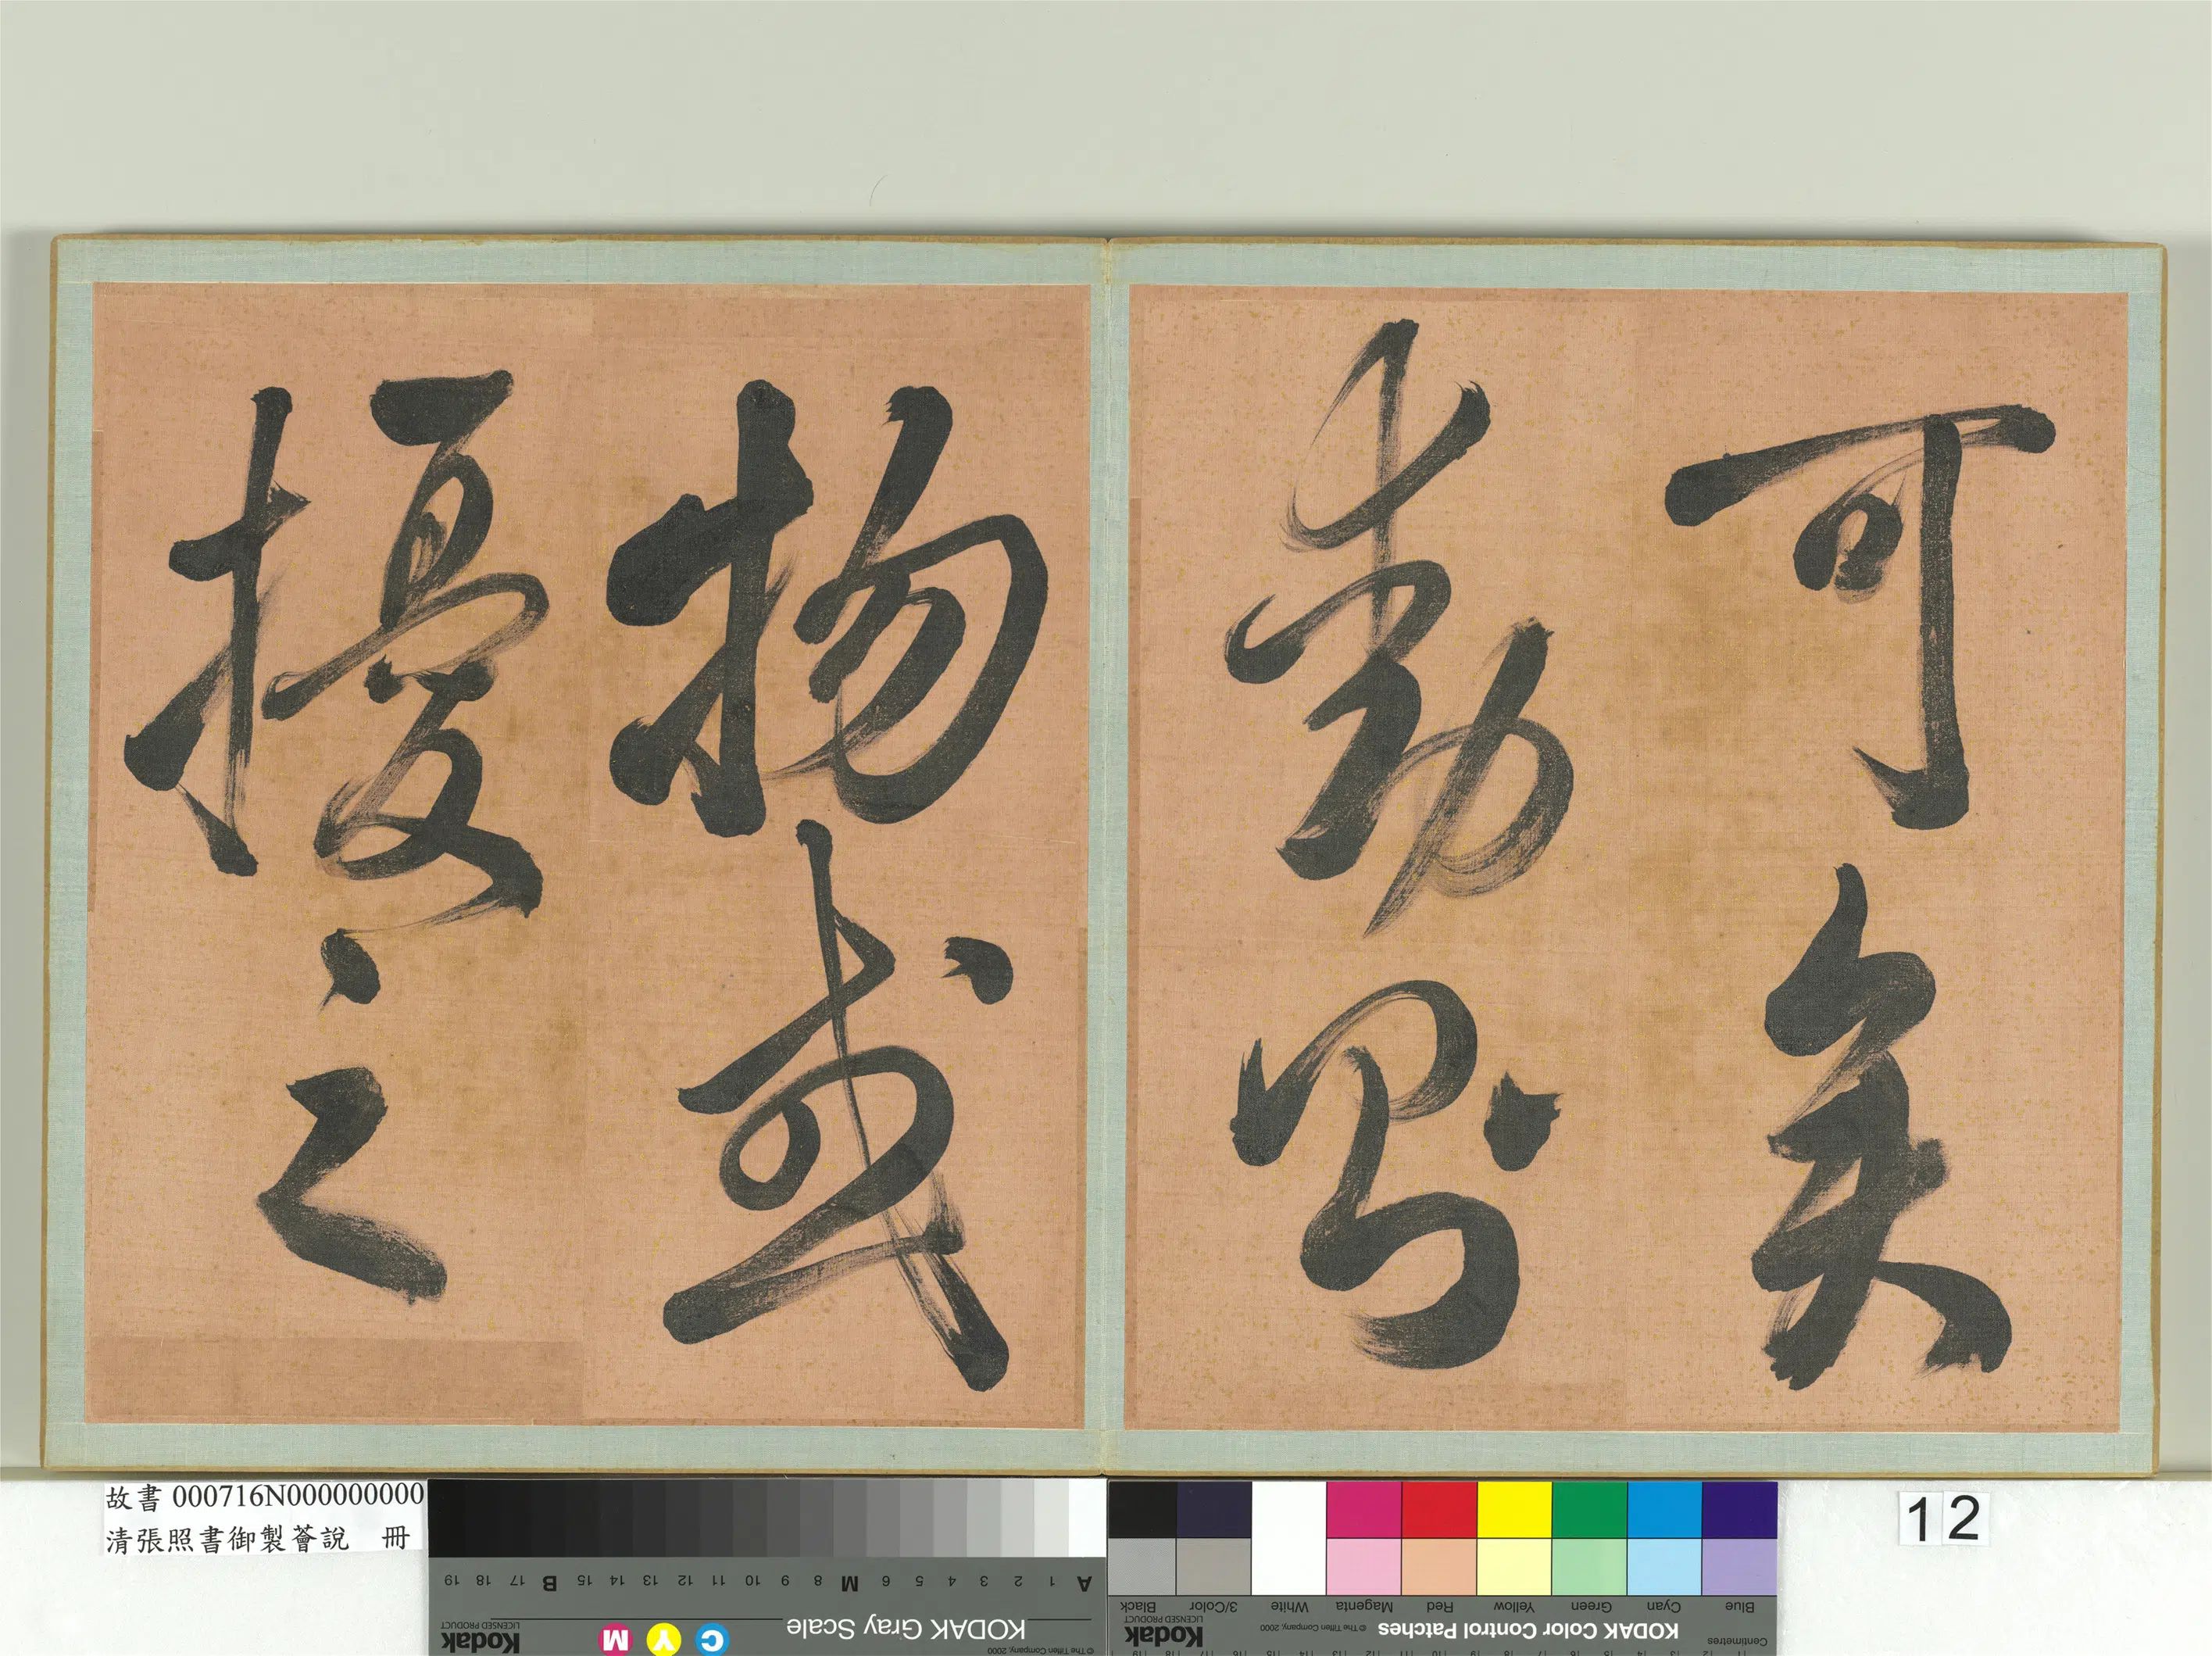 可矣
動則
物或
擾之
故書 000716N000000000
清張照書御製薈說 冊
12
A 1 2 3 4 5 6 M 8 9 10 11 12 13 14 15 B 17 18 19
KODAK Gray Scale
© The Tiffen Company, 2000
C Y M
Kodak
LICENSED PRODUCT
Blue Cyan Green Yellow Red Magenta White 3/Color Black
Centimetres
KODAK Color Control Patches
© The Tiffen Company, 2000
Kodak
LICENSED PRODUCT